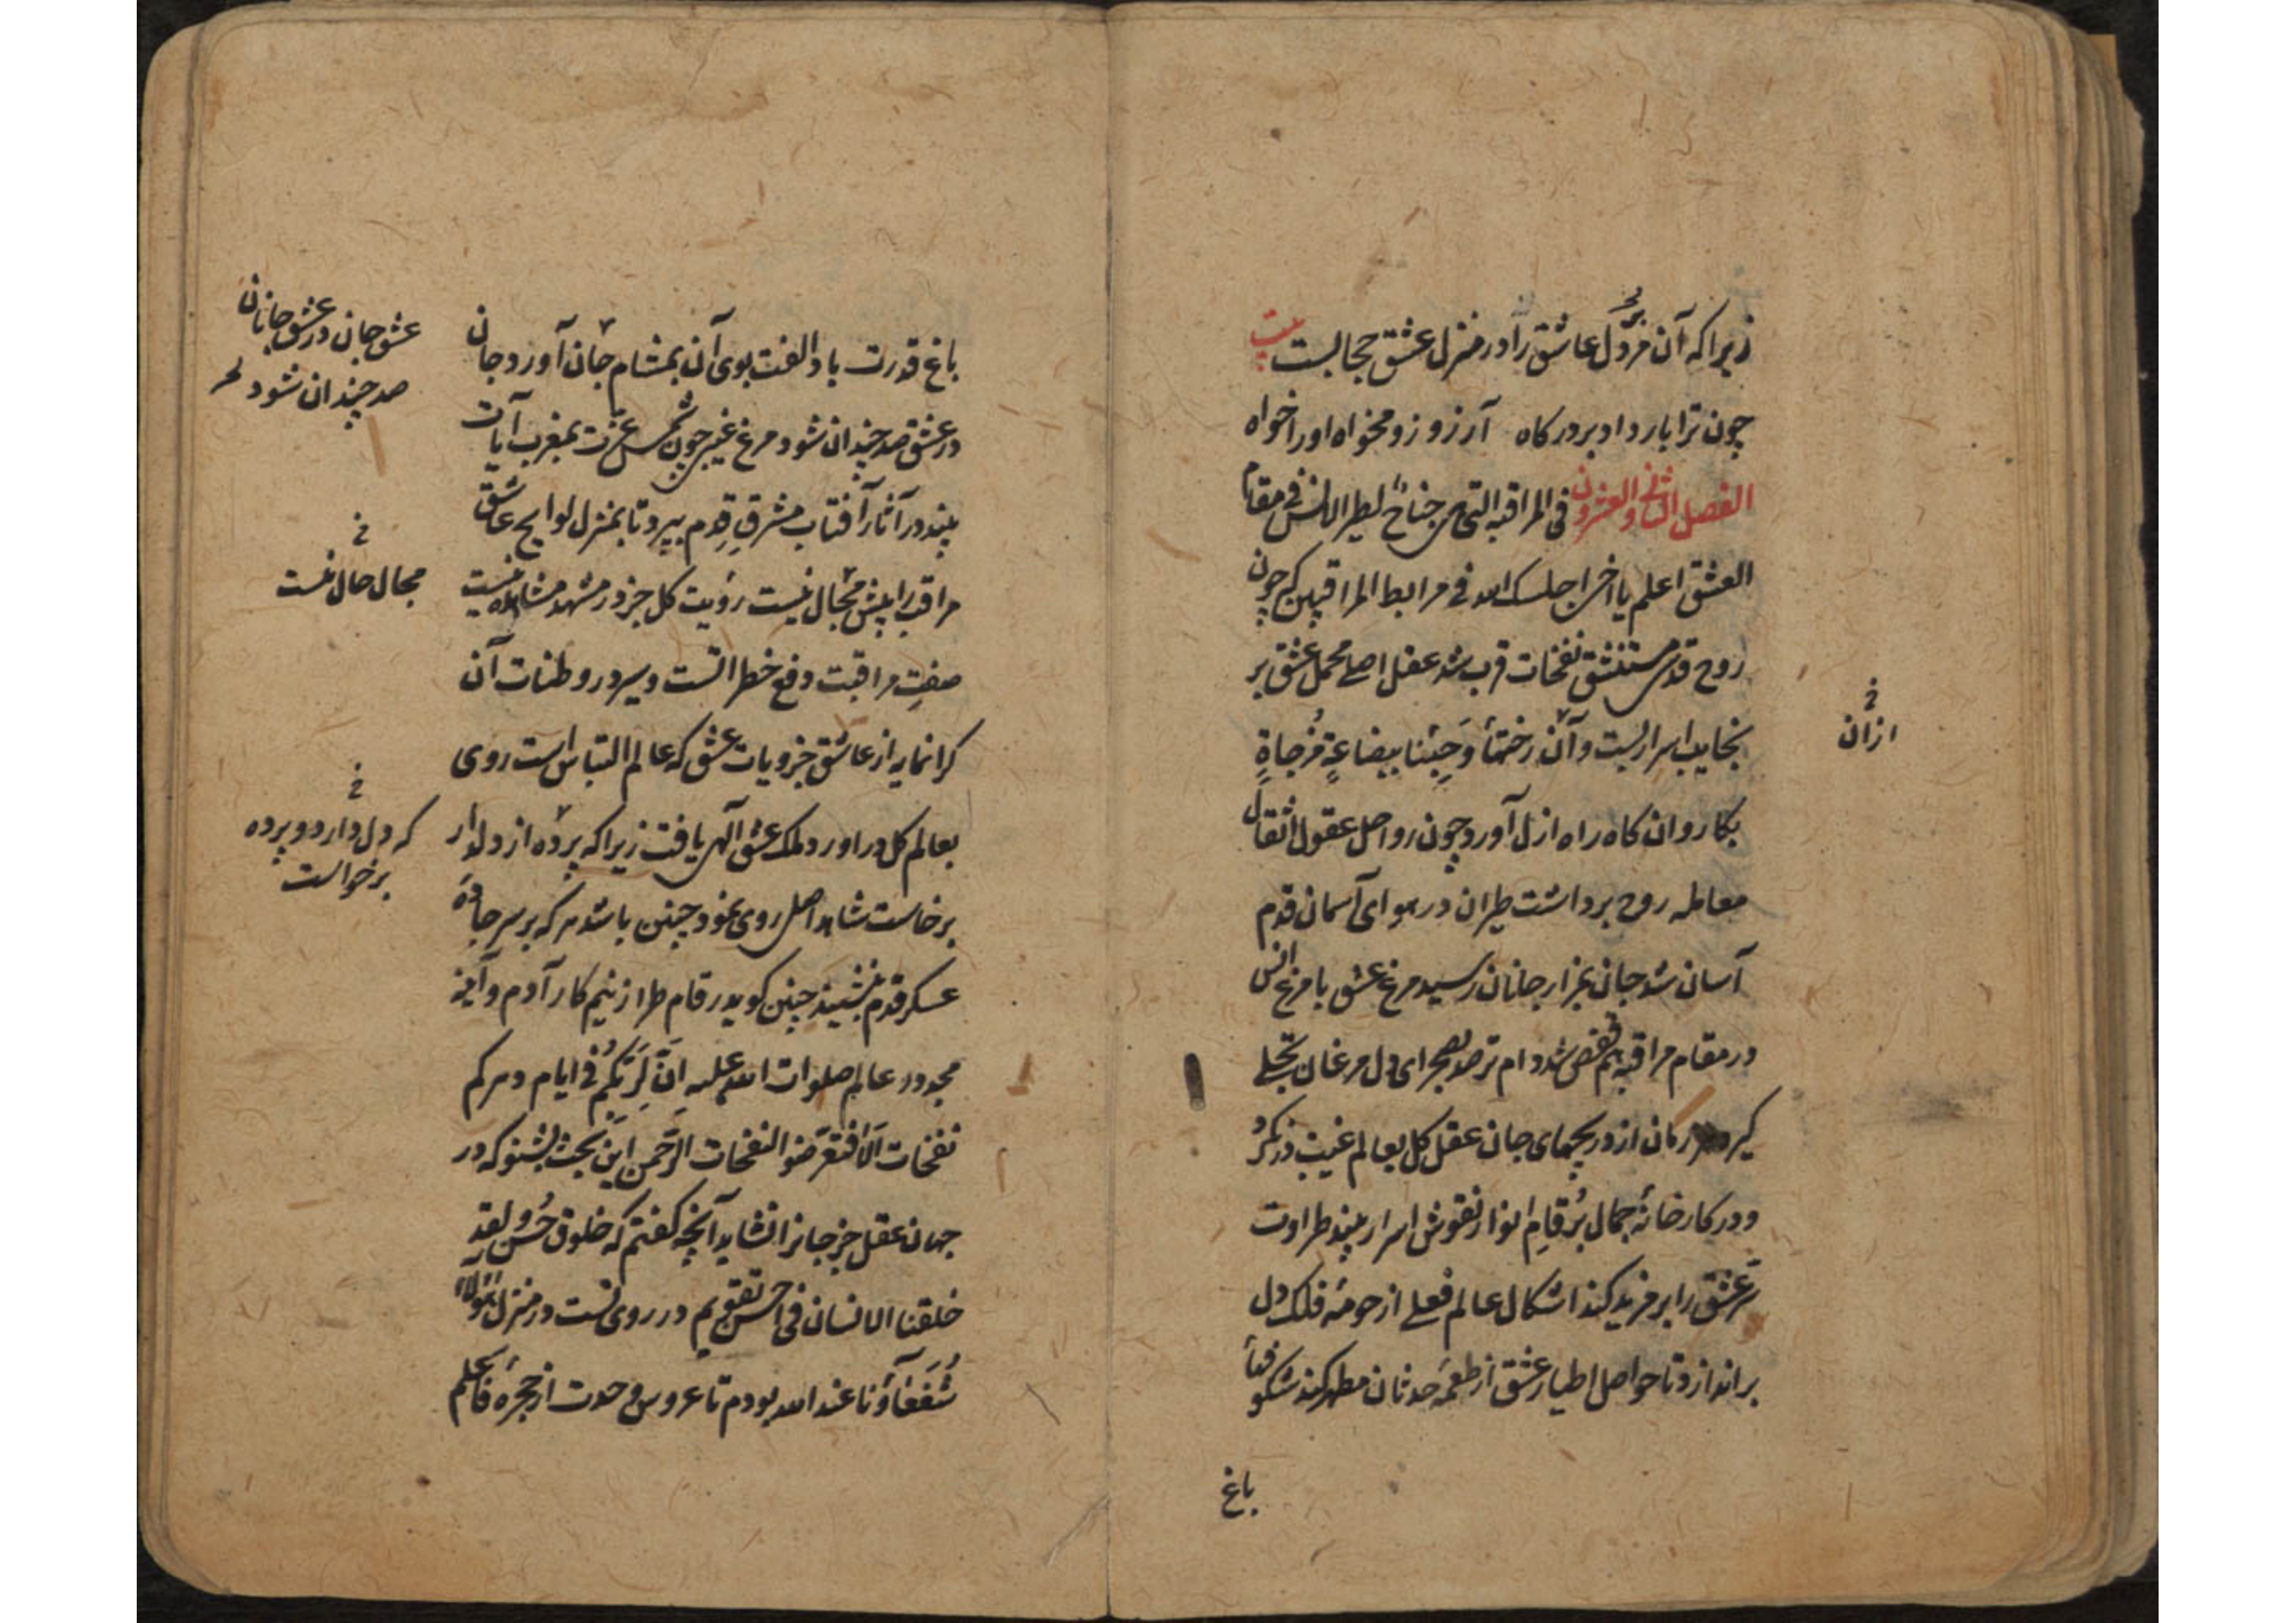 زیرا که آن مزد دل عاشق را در منزل عشق حجابست بیت
چون ترا بار داد بر درگاه آرزو زو مخواه او را خواه
الفصل الثانی و العشرون فی المراقبه التی هی جناح لطیر الانس فی مقام
العشق اعلم یا اخی اجلسک الله فی مرابط المراقبین که چون
روح قدسی مستنشق نفحات قرب شد عقل اصلی محمل عشق بر
نجایب اسرار بست و آن رختها وَجِئنا ببضاعةٍ مُزجاةٍ
بکاروان کاه راه ازل آورد چون رواحل عقول اثقال
معامله روح برداشت طیران در هوای آسمان قدم
آسان شد جان بمزار جانان رسید مرغ عشق با مرغ انس
در مقام مراقبه هم قفص شد دام ترصد بصحرای دل مرغان تجلی
گیرد زمان از دریچهای جان عقل کل بعالم غیب در نگرد
و در کارخانهٔ جمال برُقامِ انوار نقوش اسرار بیند طراوت
سرّ عشق را بر مزید کند اشکال عالم فعلی از حومهٔ فلک دل
براندازد تا حواصل اطیار عشق از طعمهٔ حدثان مطهر کند شکوفهٔ
باغ
از آن
باغ قدرت باد الفت بوی آن بمشام جان آورد جان
در عشق صد چندان شود مرغ غیبی چون شمس عزّت بمغرب آیات
بیند در آثار آفتاب مشرقِ قِدم بپرد تا بمنزل لوایح عاشق
مراقب را بیش مجال نیست رؤیت کل جز در مشهد مشاهده نیست
صفتِ مراقبت دفع خطراتست و سیر در وطنات آن
گرانمایه از عاشق جزویات عشق که عالم التباس است روی
بعالم کل در آورد و ملک عشق الهی یافت زیرا که پرده از دلدار
برخاست شاهد اصل روی نمود چنین باشد هر که بر سر جادهٔ
عسکر قدم نشیند چنین گوید رقام طراز نیم کار آدم و آینهٔ
مجدور عالم صلوات الله علیه اِنَّ لِرَبّکُم فی ایام دهرکم
نفحات اَلا فتعرّضوا النفحات الرَّحمن این بحث بشنو که در
جهان عقل جز جانرا نشاید آنچه گفتم که خلوق حُسن لقد
خلقنا الانسان فی احسن تقویم در روی تست در منزل هؤلاء
شُفَعَآؤنا عند الله بودم تا عروس وحدت از حجرهٔ فاعلم
عشق جان در عشق جانان
صد چندان شود
مجال حال نیست
که دل دارد و پرده
برخواست